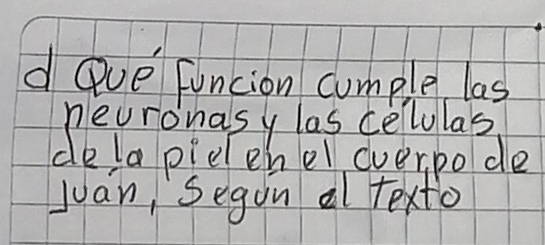 d Qué funcion cumple las
neuronas y las células
de la piel en el cuerpo de
Juan, Segun el texto